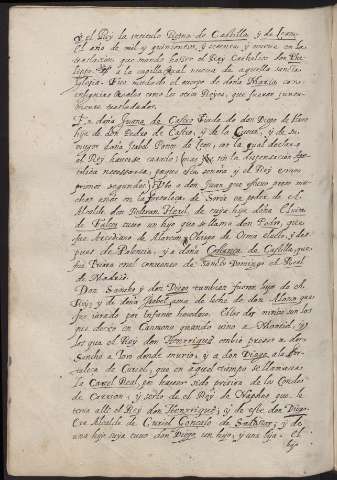 y el Rey la intitulo Reyna de Castilla, y de Leon.
El año de mil y quinientos, y setenta, y nueve en la
traslacion que mando hazer el Rey Catholico don
a la capilla Real nueva de aquella sancta
Iglesia. Fue mudado el cuerpo de doña Maria con
insignias Reales como los otros Reyes, que fueron junta-
mente trasladados.
En doña Juana de Castro viuda de don Diego de Haro
hija de don Pedro de Castro, y de la Guerra, y de su
muger doña Isabel Ponce de Leon, con la qual declara
el Rey haverse casado; mas fue sin la dispensacion Apos-
tolica necessaria, porque esta señora y el Rey eran
primos segundos; Uvo a don Juan, que estuvo preso mu-
chos años en la fortaleza de Soria en poder de el
Alcaide don Beltran Heril, de cuya hija doña Elvira
de Falces tuvo un hijo que se llamo don Pedro, que
fue Arcediano de Alarcon, Obispo de Osma electo, y des-
pues de Palencia, y a doña Costança de Castilla, que
fue Priora en el convento de Sancto Domingo el Real
de Madrid.
Don Sancho y don Diego tambien fueron hijos de el
Rey, y de doña Isabel ama de leche de don Alonso que
fue jurado por infante heredero. Estos dos niños son los
que dexo en Carmona quando vino a Montiel, y
los que el Rey don Henrrique embio presos a don
Sancho a Toro donde murio, y a don Diego a la for-
taleza de Curiel, que en aquel tiempo se llamava
la Carcel Real, por haverse sido prision de los Condes
de Carrion, y serlo de el Rey de Napoles que le
tenia alli el Rey don Henrrique; y de este don Diego
Era Alcaide de Curiel Gonçalo de Salazar; y de
una hija suya tuvo don Diego un hijo, y una hija. El
hijo